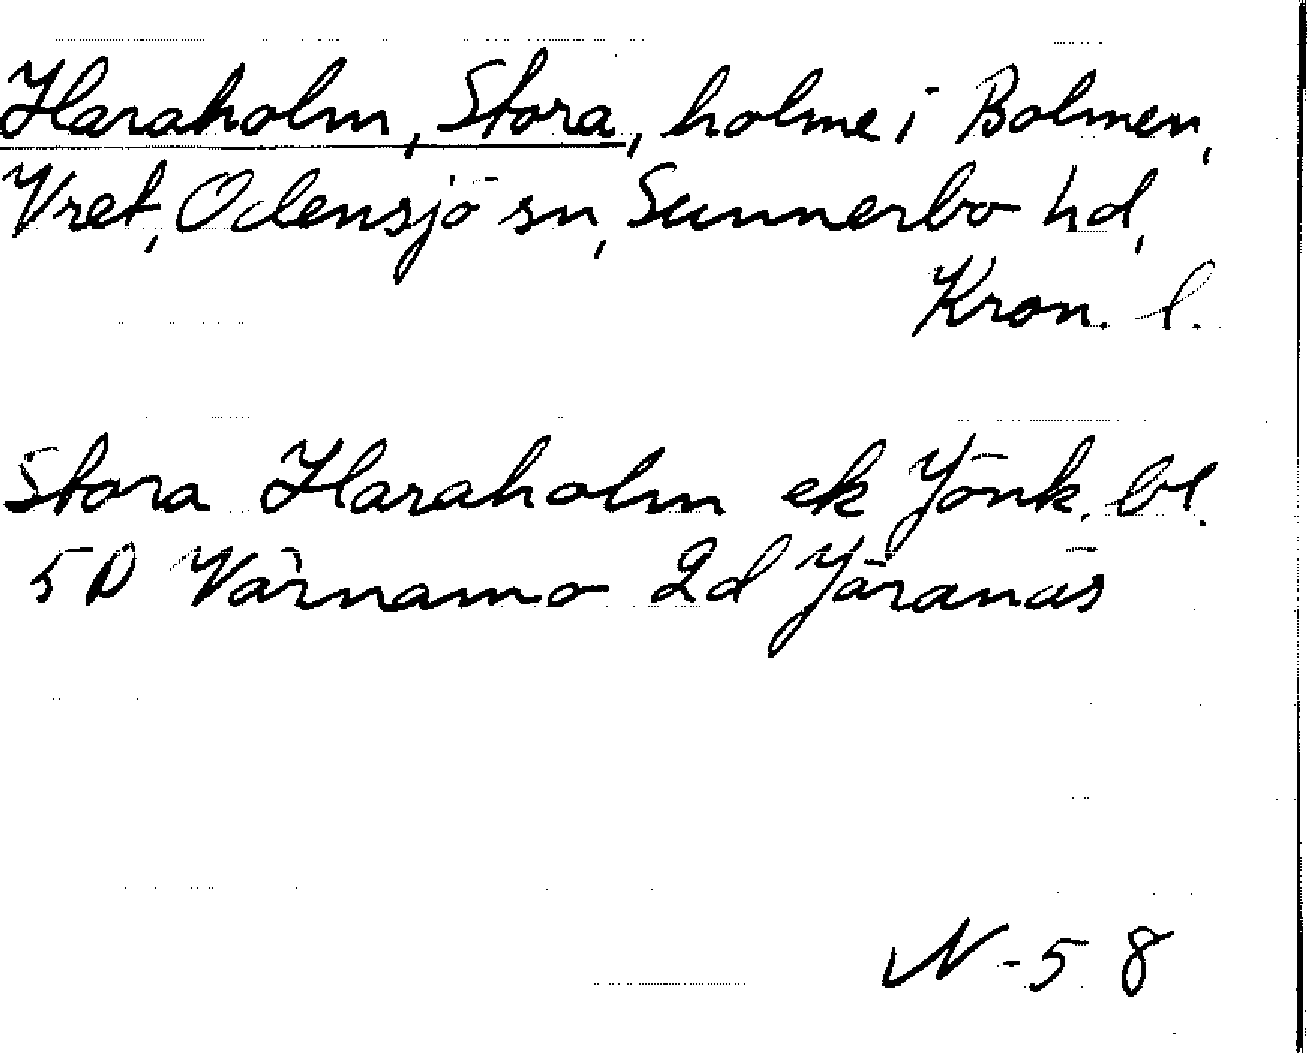 Haraholm, Stora, holme i Bolmen,
Vret, Odensjö sn, Sunnerbo hd,
Kron. l.
Stora Haraholm ek Jönk. bl.
5D Värnamo 2d Järanäs
N-58